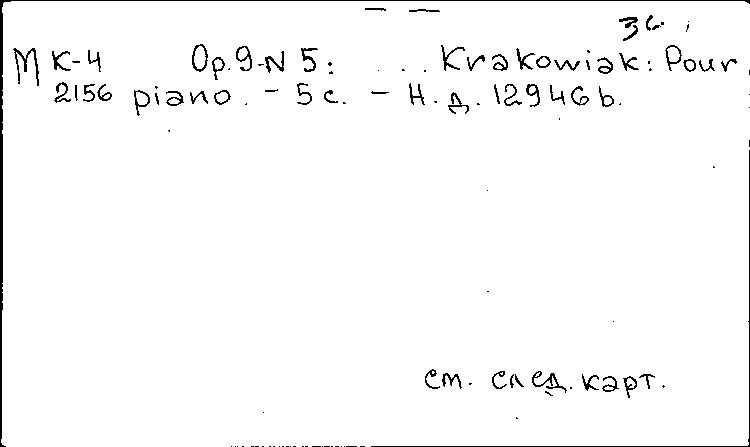 — —
3б.
М К-4 Op.9-N 5: ... Krakowiak: Pour
2156 piano. - 5 с. - Н.д. 12946 b.
см. след. карт.